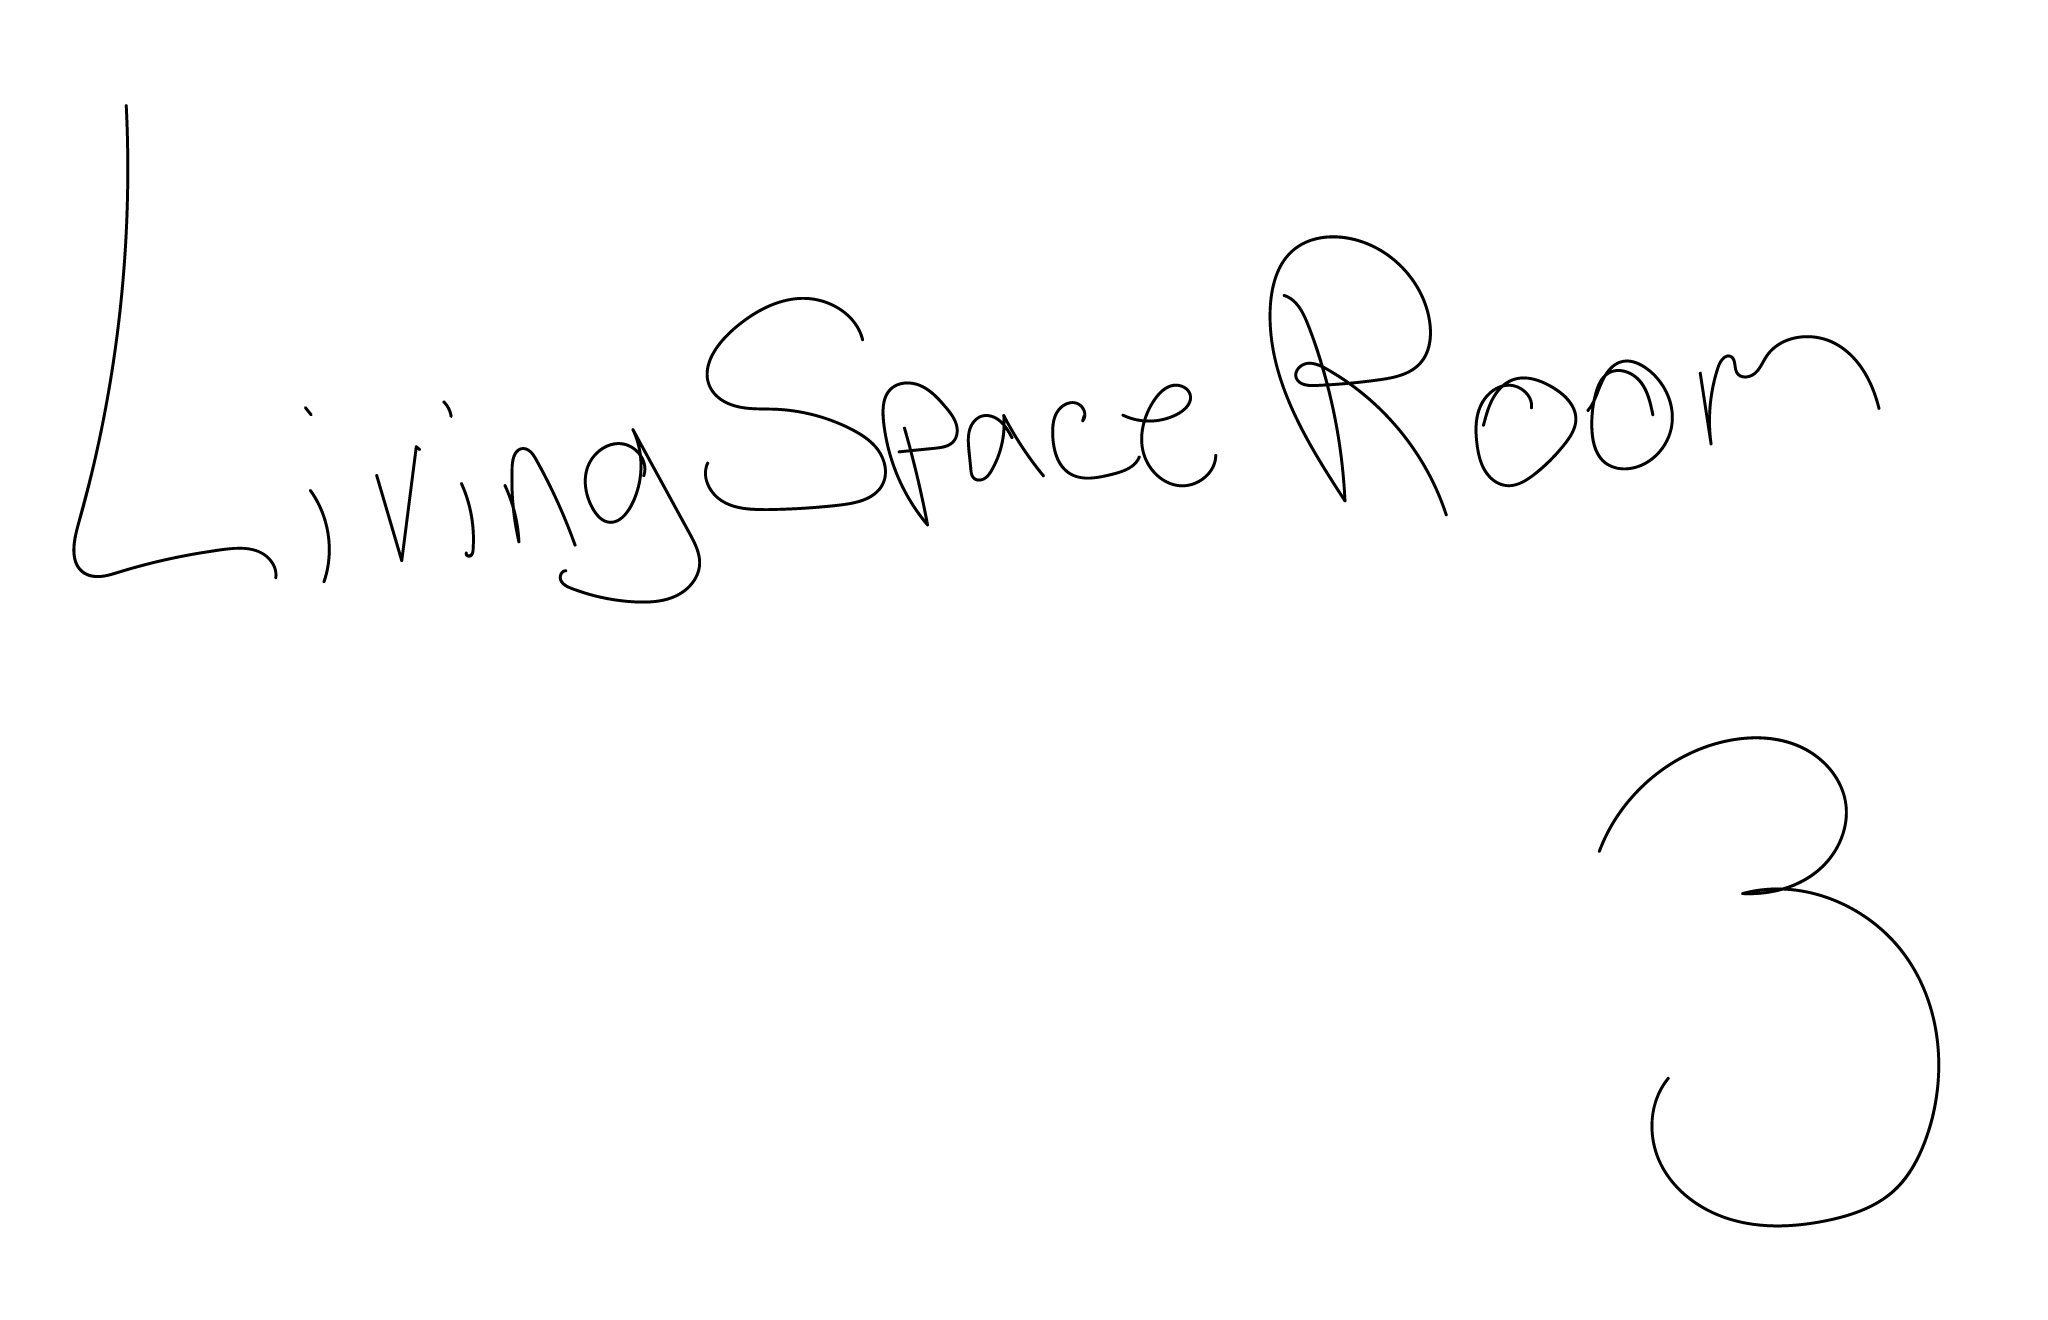 Living Space Room
3